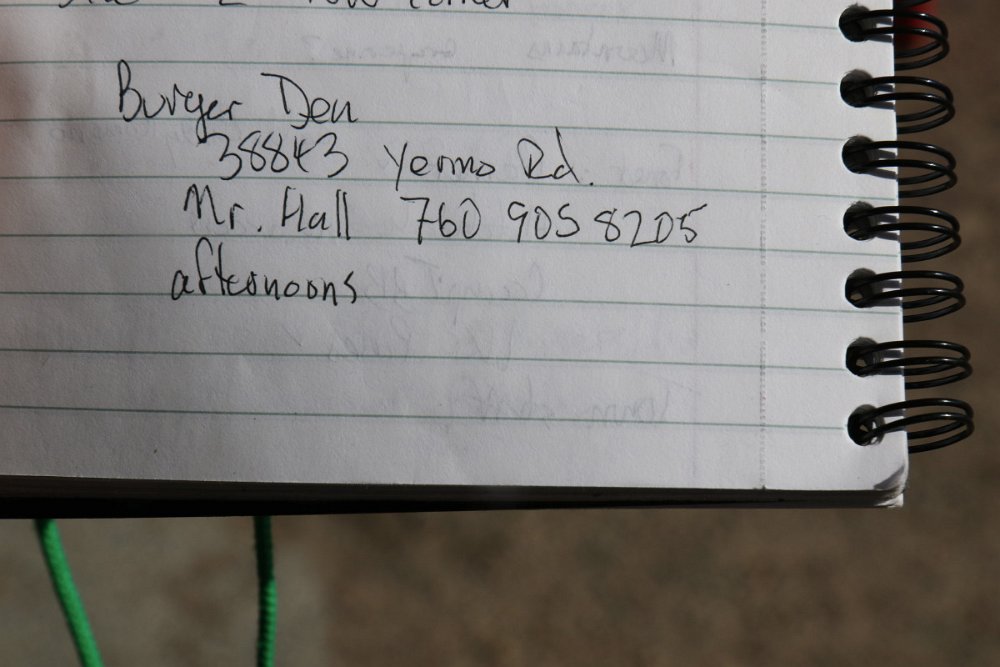 Burger Den
38843 Yermo Rd.
Mr. Hall 760 905 8205
afternoons